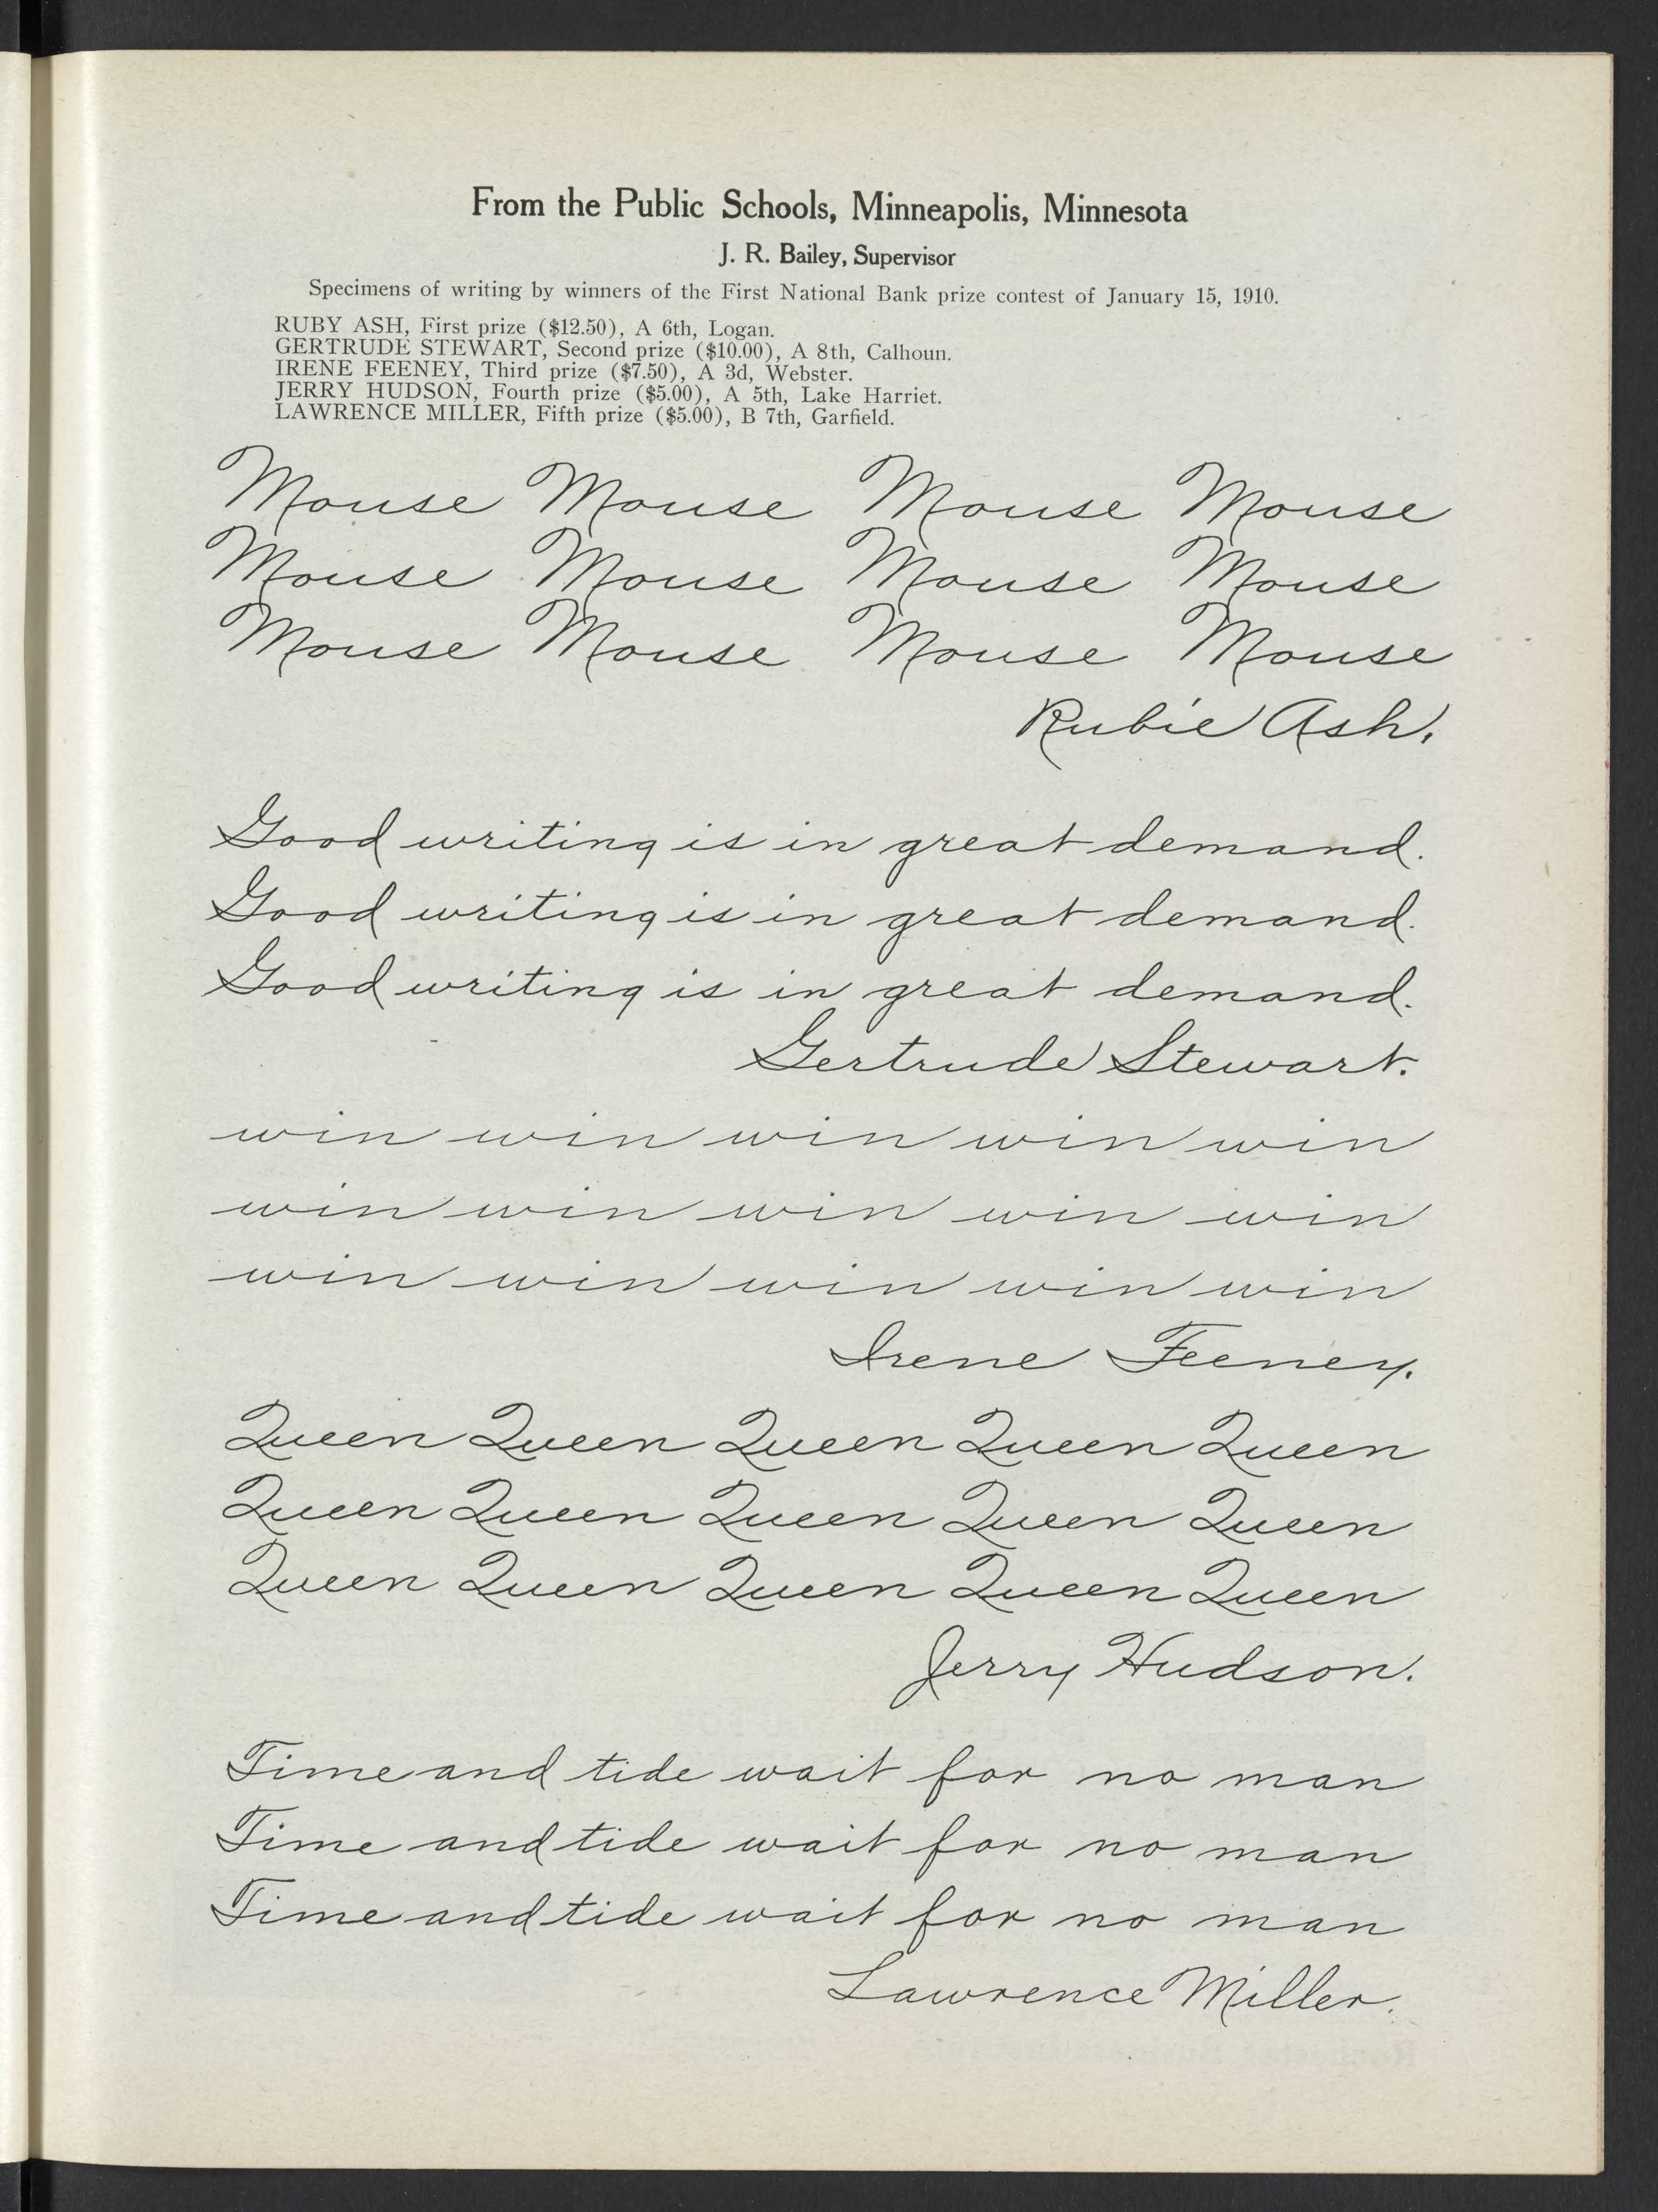 From the Public Schools, Minneapolis, Minnesota
J. R. Bailey, Supervisor
Specimens of writing by winners of the First National Bank prize contest of January 15, 1910.
RUBY ASH, First prize ($12.50), A 6th, Logan.
GERTRUDE STEWART, Second prize ($10.00), A 8th, Calhoun.
IRENE FEENEY, Third prize ($7.50), A 3d, Webster.
JERRY HUDSON, Fourth prize ($5.00), A 5th, Lake Harriet.
LAWRENCE MILLER, Fifth prize ($5.00), B 7th, Garfield.
Mouse Mouse Mouse Mouse
Mouse Mouse Mouse Mouse
Mouse Mouse Mouse Mouse
Rubie Ash.
Good writing is in great demand.
Good writing is in great demand.
Good writing is in great demand.
Gertrude Stewart.
win win win win win
win win win win win
win win win win win
Irene Feeney.
Queen Queen Queen Queen Queen
Queen Queen Queen Queen Queen
Queen Queen Queen Queen Queen
Jerry Hudson.
Time and tide wait for no man
Time and tide wait for no man
Time and tide wait for no man
Lawrence Miller.